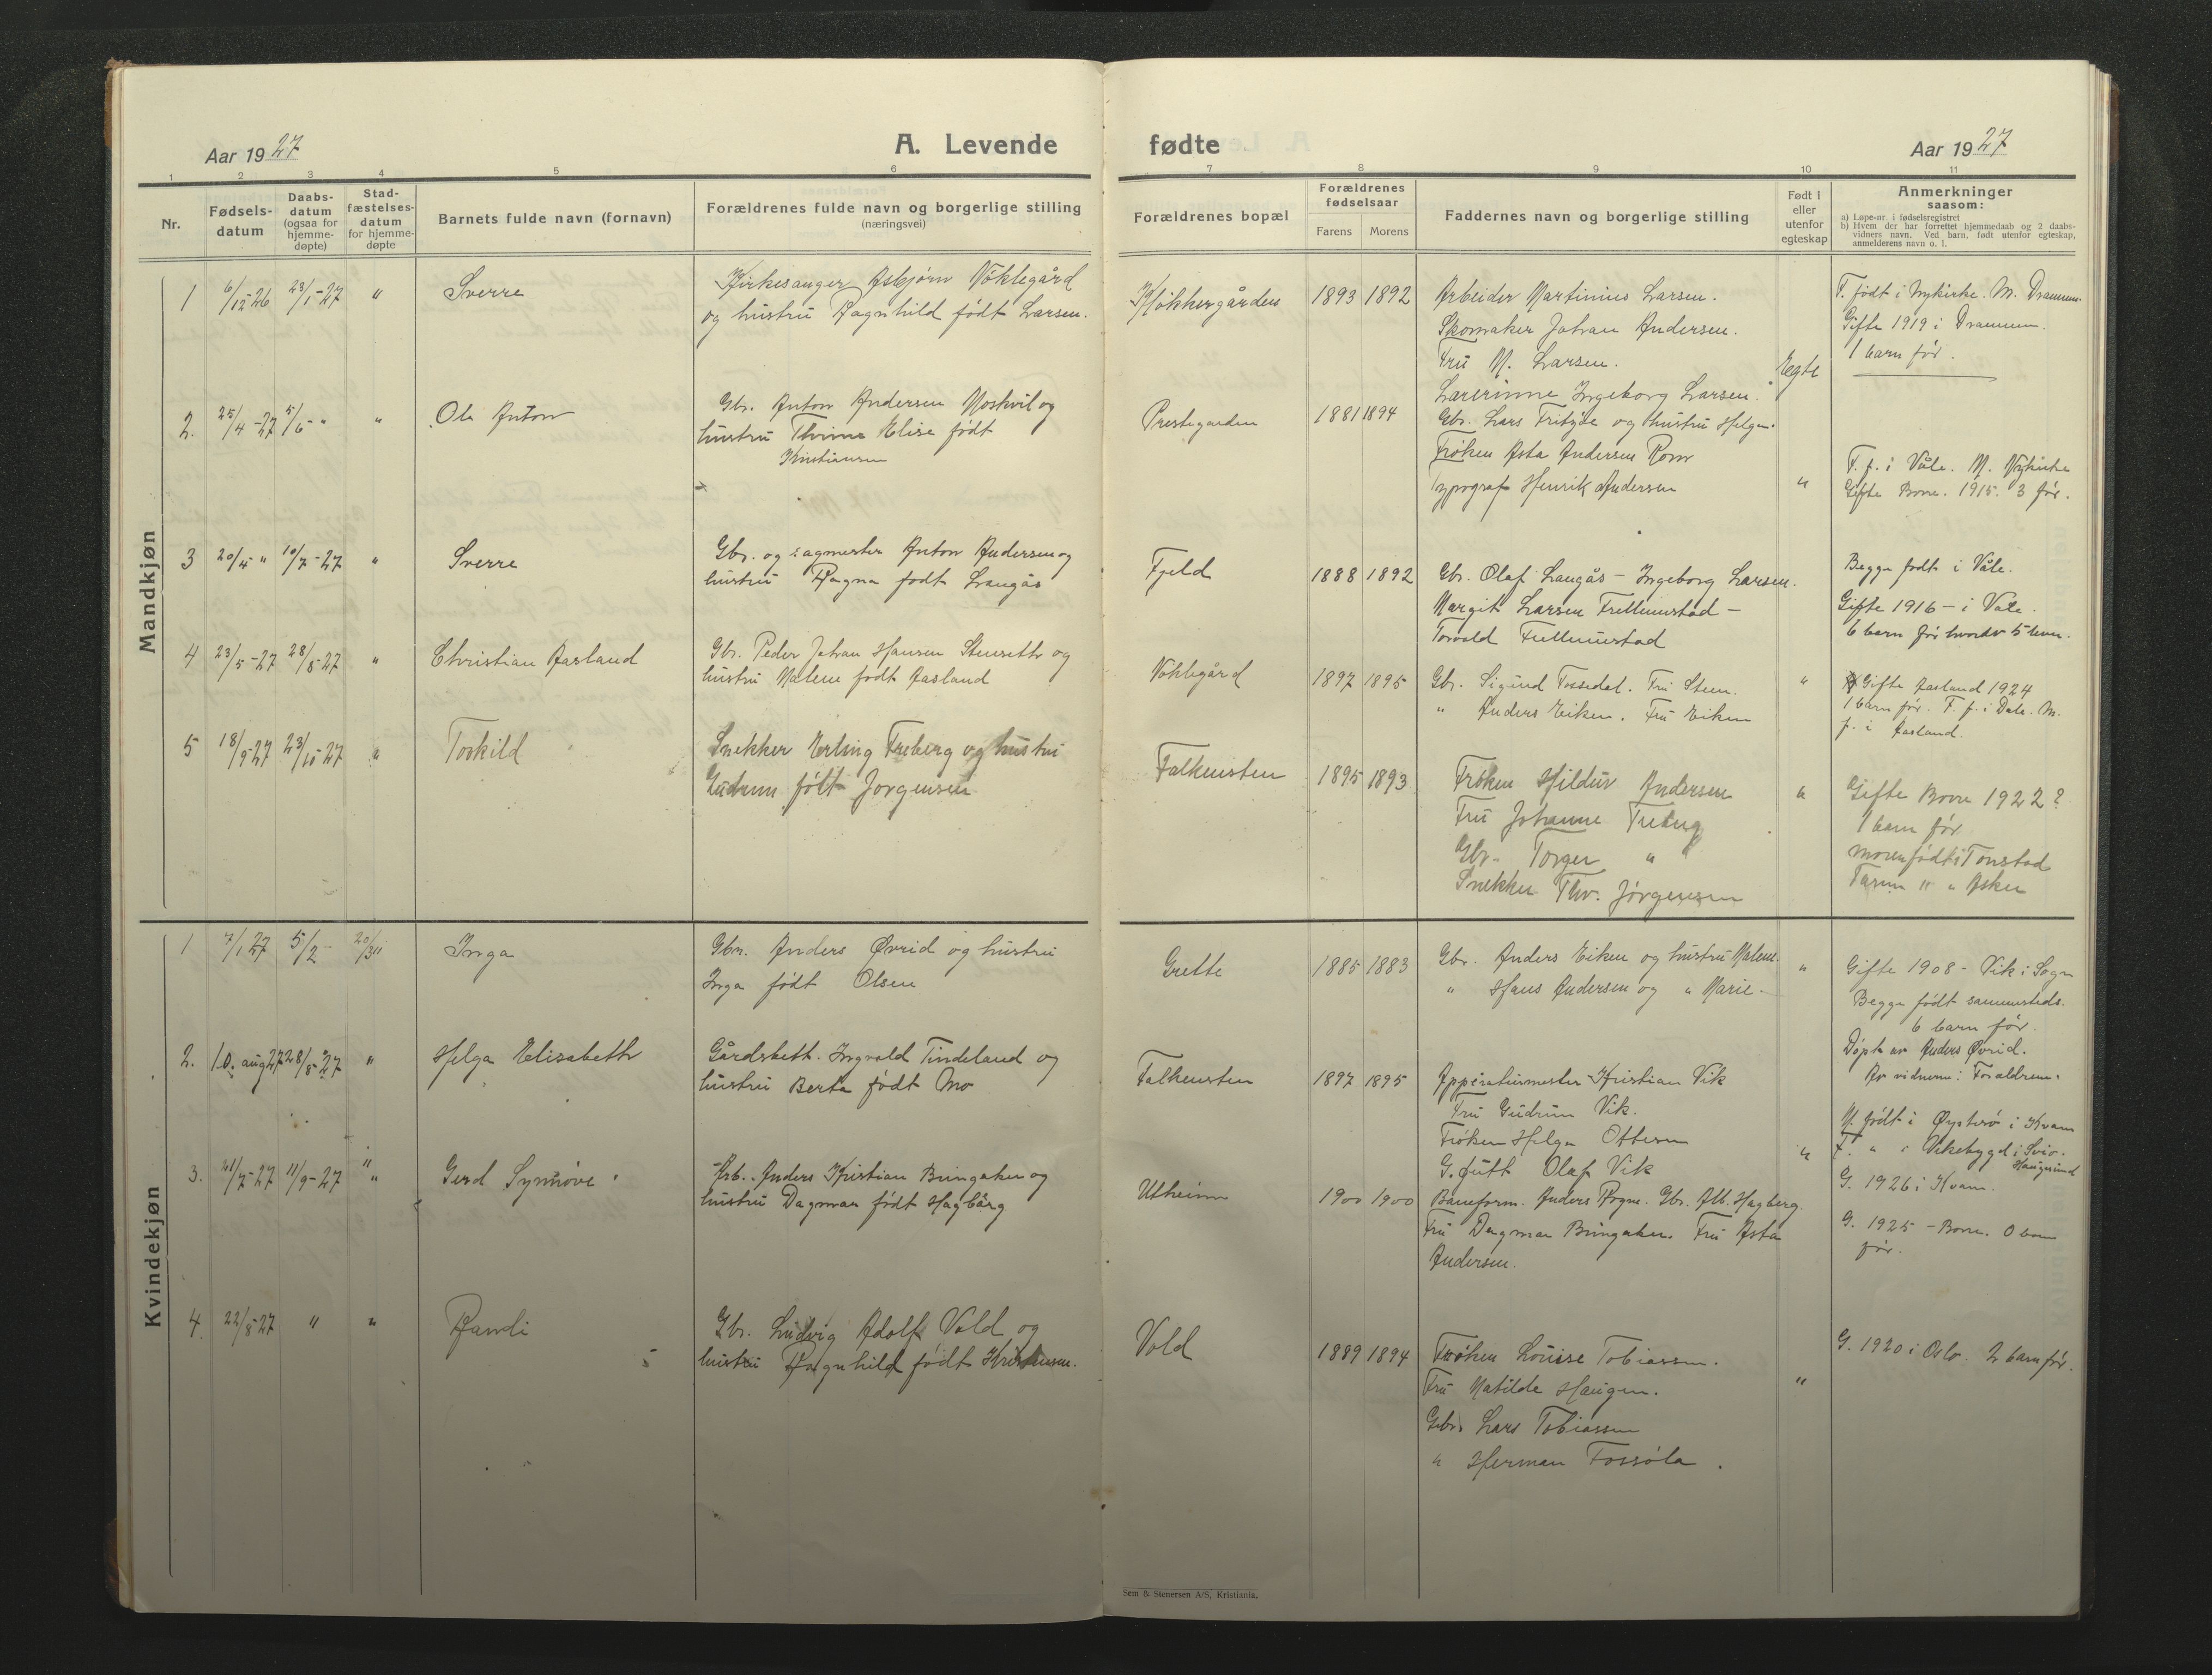 Aar 1927
A. Levende
fødte
Aar 1927
1 2 3 4 5 6 7 8 9 10 11
Nr.
Fødsels-
datum
Daabs-
datum
(ogsaa for
hjemme-
døpte)
Stad-
fæstelses-
datum
for hjemme-
døpte
Barnets fulde navn (fornavn)
Forældrenes fulde navn og borgerlige stilling
(næringsvei)
Forældrenes bopæl
Forældrenes
fødselsaar
Farens Morens
Faddernes navn og borgerlige stilling
Født i
eller
utenfor
egteskap
Anmerkninger
saasom:
a) Løpe-nr. i fødselsregistret
b) Hvem der har forrettet hjemmedaab og 2 daabs-
vidners navn. Ved barn, født utenfor egteskap,
anmelderens navn o. l.
Mandkjøn
1 6/12-26 23/1-27 " Sverre
Kirkesanger Asbjørn Nøklegård
og hustru Ragnhild født Larsen.
Klokkergården 1893 1892
Arbeider Martinius Larsen.
Skomaker Johan Andersen.
Fru M. Larsen.
Lærerinne Ingeborg Larsen.
Egte
F. født i Nykirke. M. Drammen.
Gifte 1919 i Drammen.
1 barn før.
2. 25/4-27 5/6-" " Ole Anton
Gbr. Anton Andersen Moskvil og
hustru Thrine Elise født
Kristiansen
Prestegarden 1881 1894
Gbr. Lars Fritzøe og hustru Helga.
Frøken Asta Andersen Rom
Typograf Henrik Andersen
"
F. f. i Våle. M. Nykirke
Gifte Borre. 1915. 3 før.
3 20/4 " 10/7-27 " Sverre
Gbr. og sagmester Anton Andersen og
hustru Ragna født Langås
Fjeld 1888 1892
Gbr. Olaf Langås - Ingeborg Larsen.
Margit Larsen Frellumstad -
Torvald Frellumstad
Begge født i Våle.
Gifte 1916 - i Våle.
6 barn før hvorav 5 lever.
4 23/5-27 28/8-27 " Christian Aasland
Gbr. Peder Johan Hansen Stenseth og
hustru Malene født Aasland
Nøklegård 1897 1895
Gbr. Sigurd Tossedal. Fru Steen.
" Anders Eiken. Fru Eiken
"
Gifte Aasland 1924
1 barn før. F. f. i Dale. M.
f. i Aasland.
5 18/9-27 23/10-27 " Torkild
Snekker Erling Freberg og hustru
Gudrun født Jørgensen
Falkensten 1895 1893
Frøken Hildur Andersen
Fru Johanne Freberg
Gbr. Torger "
Snekker Thv. Jørgensen
"
Gifte Borre 1922?
1 barn før
moren født i Tonstad
Faren " " Asker
Kvindekjøn
1 7/1 27 5/2 20/3 " Inga
Gbr. Anders Øvrid og hustru
Inga født Olsen
Grette 1885 1883
Gbr. Anders Eiken og hustru Malene.
" Hans Andersen og " Marie.
"
Gifte 1908 - Vik i Sogn
Begge født sammesteds.
6 barn før.
Døpt av Anders Øvrid.
Av vidnerne: Forældrene.
2. 10. aug 27 28/8-27 " Helga Elisabeth
Gårdsbest. Ingvald Tindeland og
hustru Berta født Mo
Falkensten 1897 1895
Apperaturmester Kristian Vik
Fru Gudrun Vik.
Frøken Helga Ottesen
G.gutt Olaf Vik
"
M. født i Øystesø i Kvam
F. " i Vikebygd i
Haugesund
G. 1926 i Kvam.
3. 21/7-27 11/9-27 " Gerd Synnøve
Arb. Anders Kristian Bringaker og
hustru Dagmar født Hagbårg
Utheim 1900 1900
Baneform. Anders Rogne. Gbr. Alb. Hagberg.
Fru Dagmar Bringaker. Fru Asta
Andersen.
G. 1925 - Borre. 0 barn
før.
4. 22/8-27 " " Randi
Gbr. Ludvig Adolf Vold og
hustru Ragnhild født Kristiansen.
Vold 1889 1894
Frøken Louise Tobiassen.
Fru Matilde Haugen.
Gbr. Lars Tobiassen
" Herman Fossøla.
"
G. 1920 i Oslo. 2 barn før.
Sem & Stenersen A/S, Kristiania.